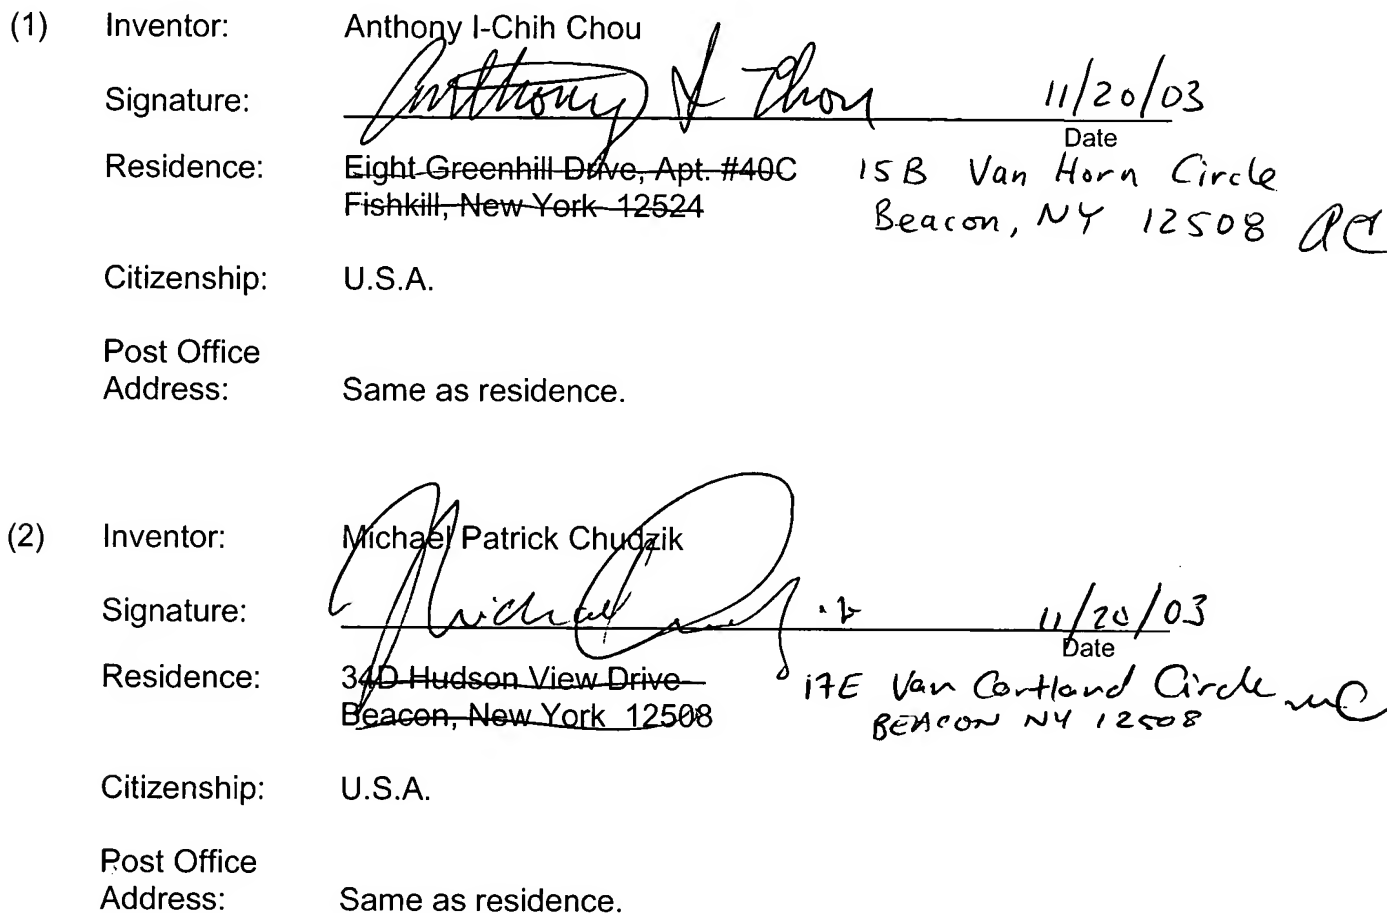 (1) Inventor: Anthony I-Chih Chou
Signature: Anthony I Chou 11/20/03
Date
Residence: Eight Greenhill Drive, Apt. #40C 15B Van Horn Circle
Fishkill, New York 12524 Beacon, NY 12508 AC
Citizenship: U.S.A.
Post Office
Address: Same as residence.
(2) Inventor: Michael Patrick Chudzik
Signature: Michael 11/20/03
Date
Residence: 34D Hudson View Drive 17E Van Cortland Circle MC
Beacon, New York 12508 BEACON NY 12508
Citizenship: U.S.A.
Post Office
Address: Same as residence.